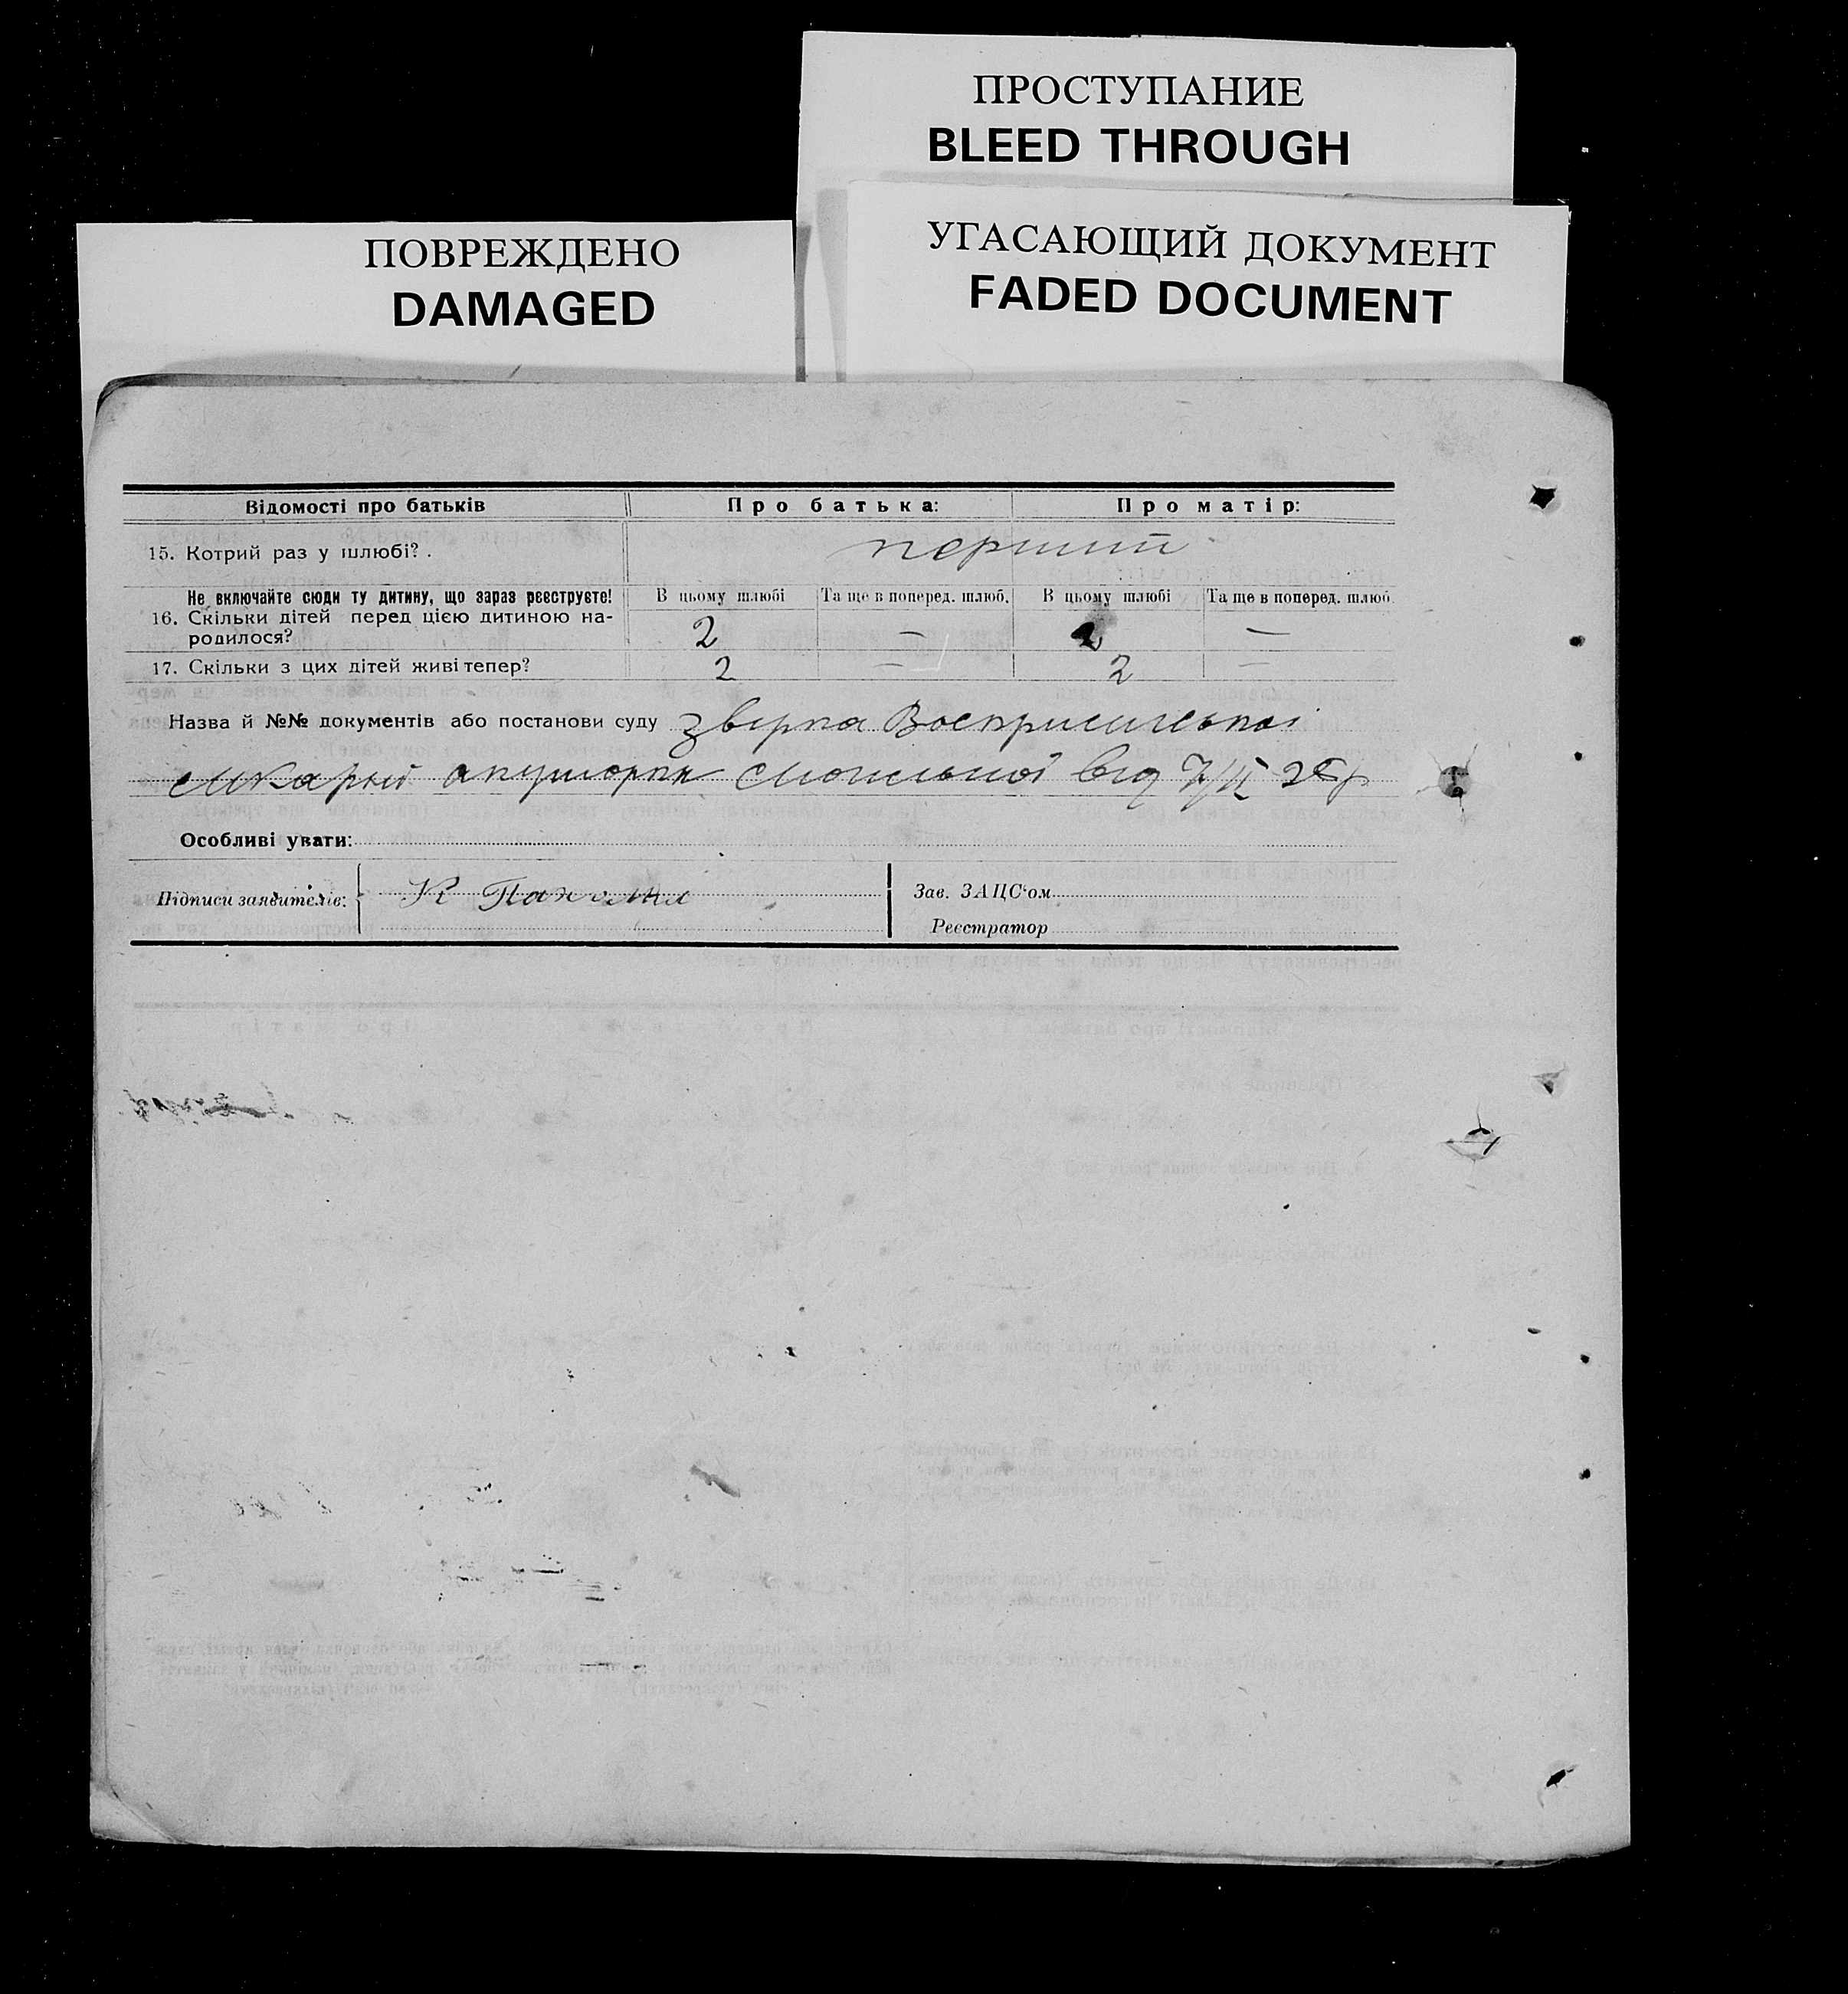 ПРОСТУПАНИЕ
BLEED THROUGH
УГАСАЮЩИЙ ДОКУМЕНТ
FADED DOCUMENT
ПОВРЕЖДЕНО
DAMAGED
Відомості про батьків Про батька: Про матір:
15. Котрий раз у шлюбі? . перший
Не включайте сюди ту дитину, що зараз реєструєте! В цьому шлюбі Та ще в поперед. шлюб. В цьому шлюбі Та ще в поперед. шлюб.
16. Скільки дітей перед цією дитиною на-
родилося? 2 — 2 —
17. Скільки з цих дітей живі тепер? 2 — 2 —
Назва й №№ документів або постанови суду
акушорки від
Особливі уваги:
Підписи заявителів: К
Зав. ЗАЦС'ом
Реєстратор